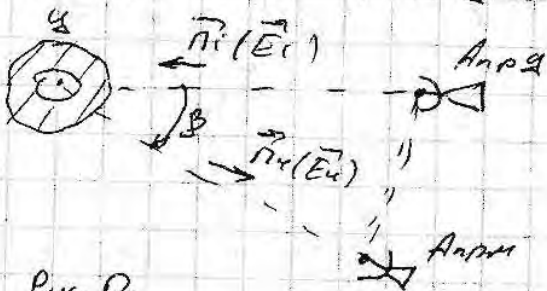 ц
П⃗i(E⃗i)
Апрд
β
П⃗r(E⃗r)
Апрм
Рис. D